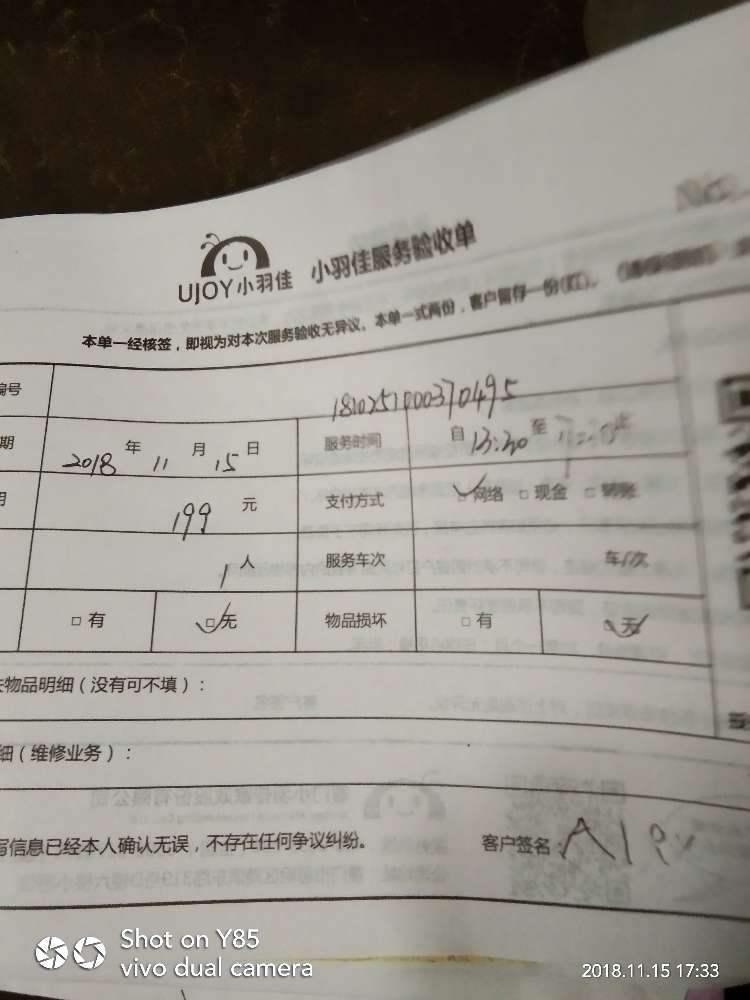 UJOY小羽佳 小羽佳服务验收单
本单一经核签，即视为对本次服务验收无异议。本单一式两份，客户留存一份(红)。
编号 1810251000370495
期 2018 年 11 月 15 日 服务时间 自 13:30 至
199 元 支付方式 网络 □ 现金 □ 转账
1 人 服务车次 车/次
□ 有 □ 无 物品损坏 □ 有 □ 无
物品明细（没有可不填）：
细（维修业务）：
写信息已经本人确认无误，不存在任何争议纠纷。 客户签名：Alex
Shot on Y85
vivo dual camera
2018.11.15 17:33